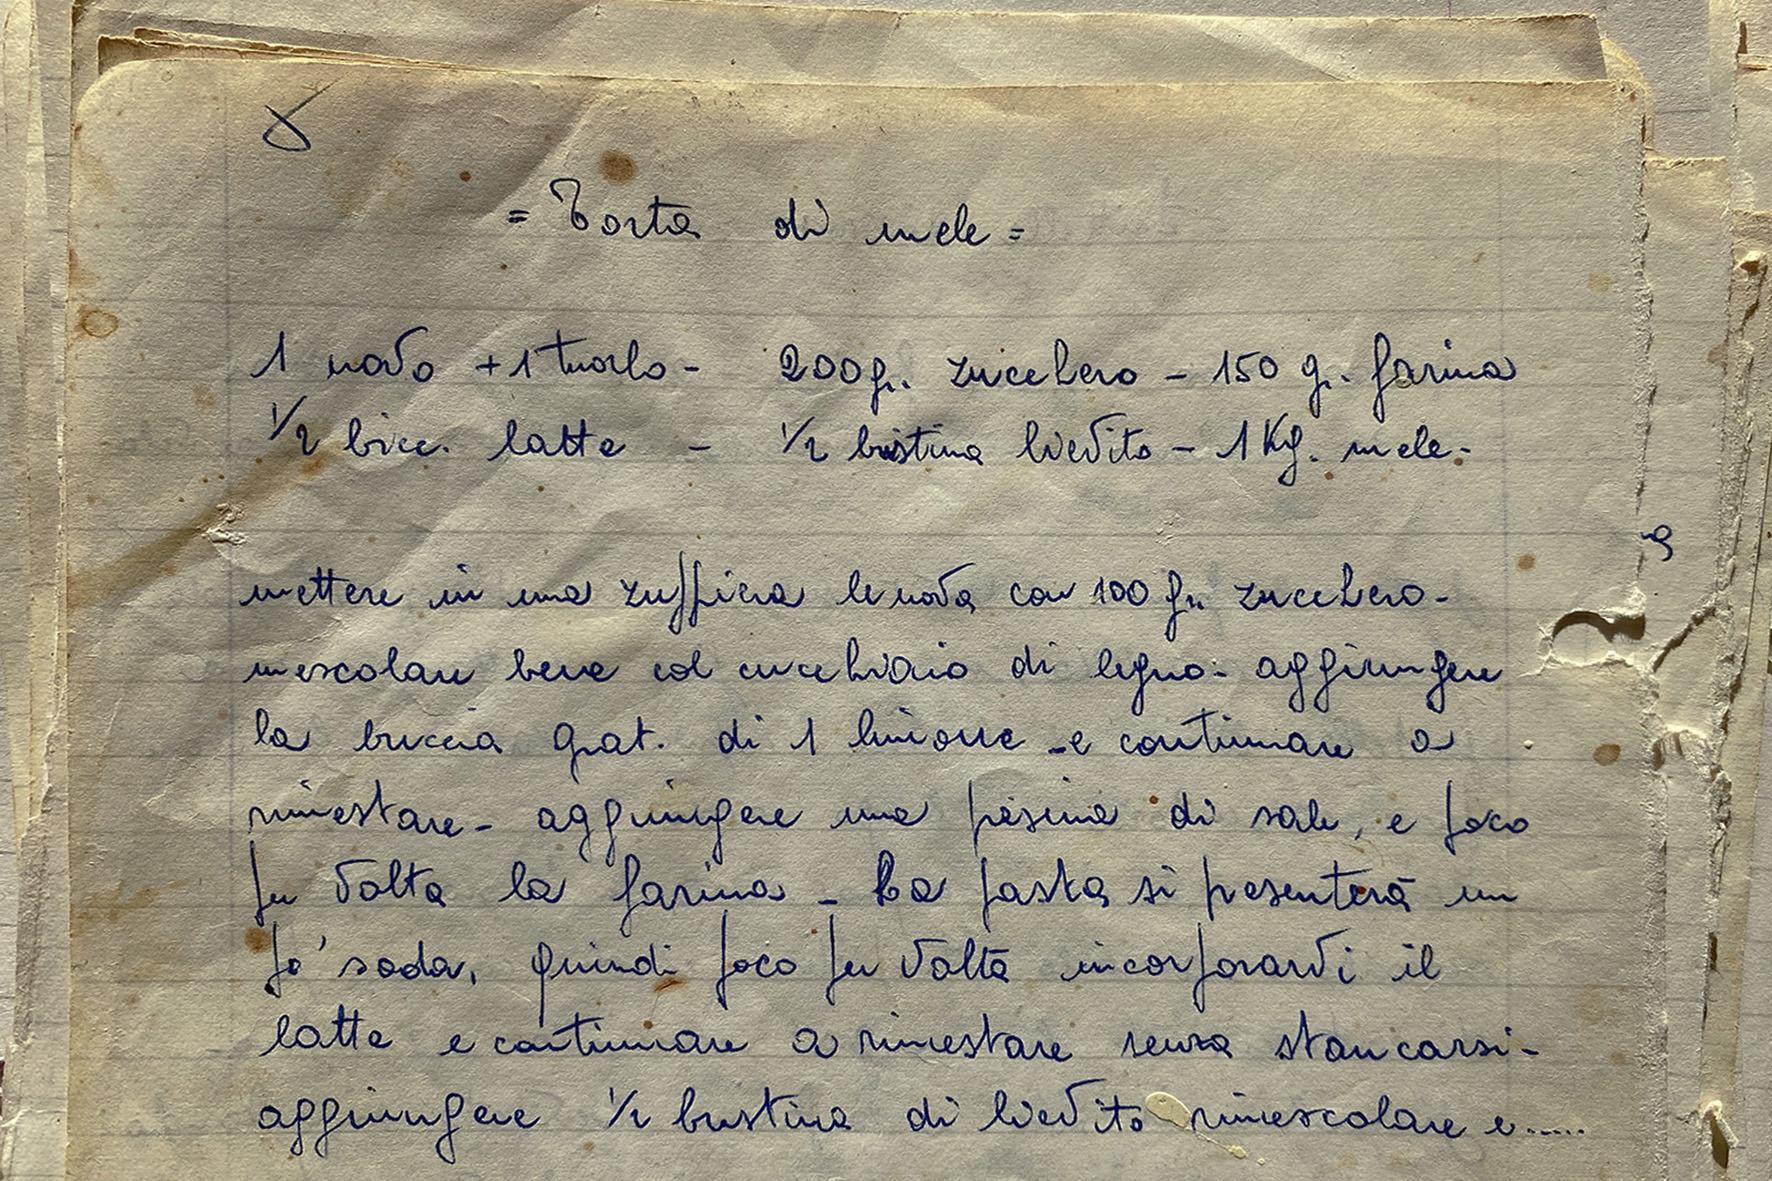 = Torta di mele =
1 uovo + 1 tuorlo - 200 gr. zucchero - 150 gr. farina
1/2 bicc. latte - 1/2 bustina lievito - 1 Kg. mele.
mettere in una zuppiera le uova con 100 gr. zucchero -
mescolare bene col cucchiaio di legno - aggiungere
la buccia grat. di 1 limone - e continuare a
rimestare - aggiungere una presina di sale, e poco
per volta la farina - La pasta si presenterà un
po' soda, quindi poco per volta incorporarvi il
latte e continuare a rimestare senza stancarsi -
aggiungere 1/2 bustina di lievito rimescolare e.....